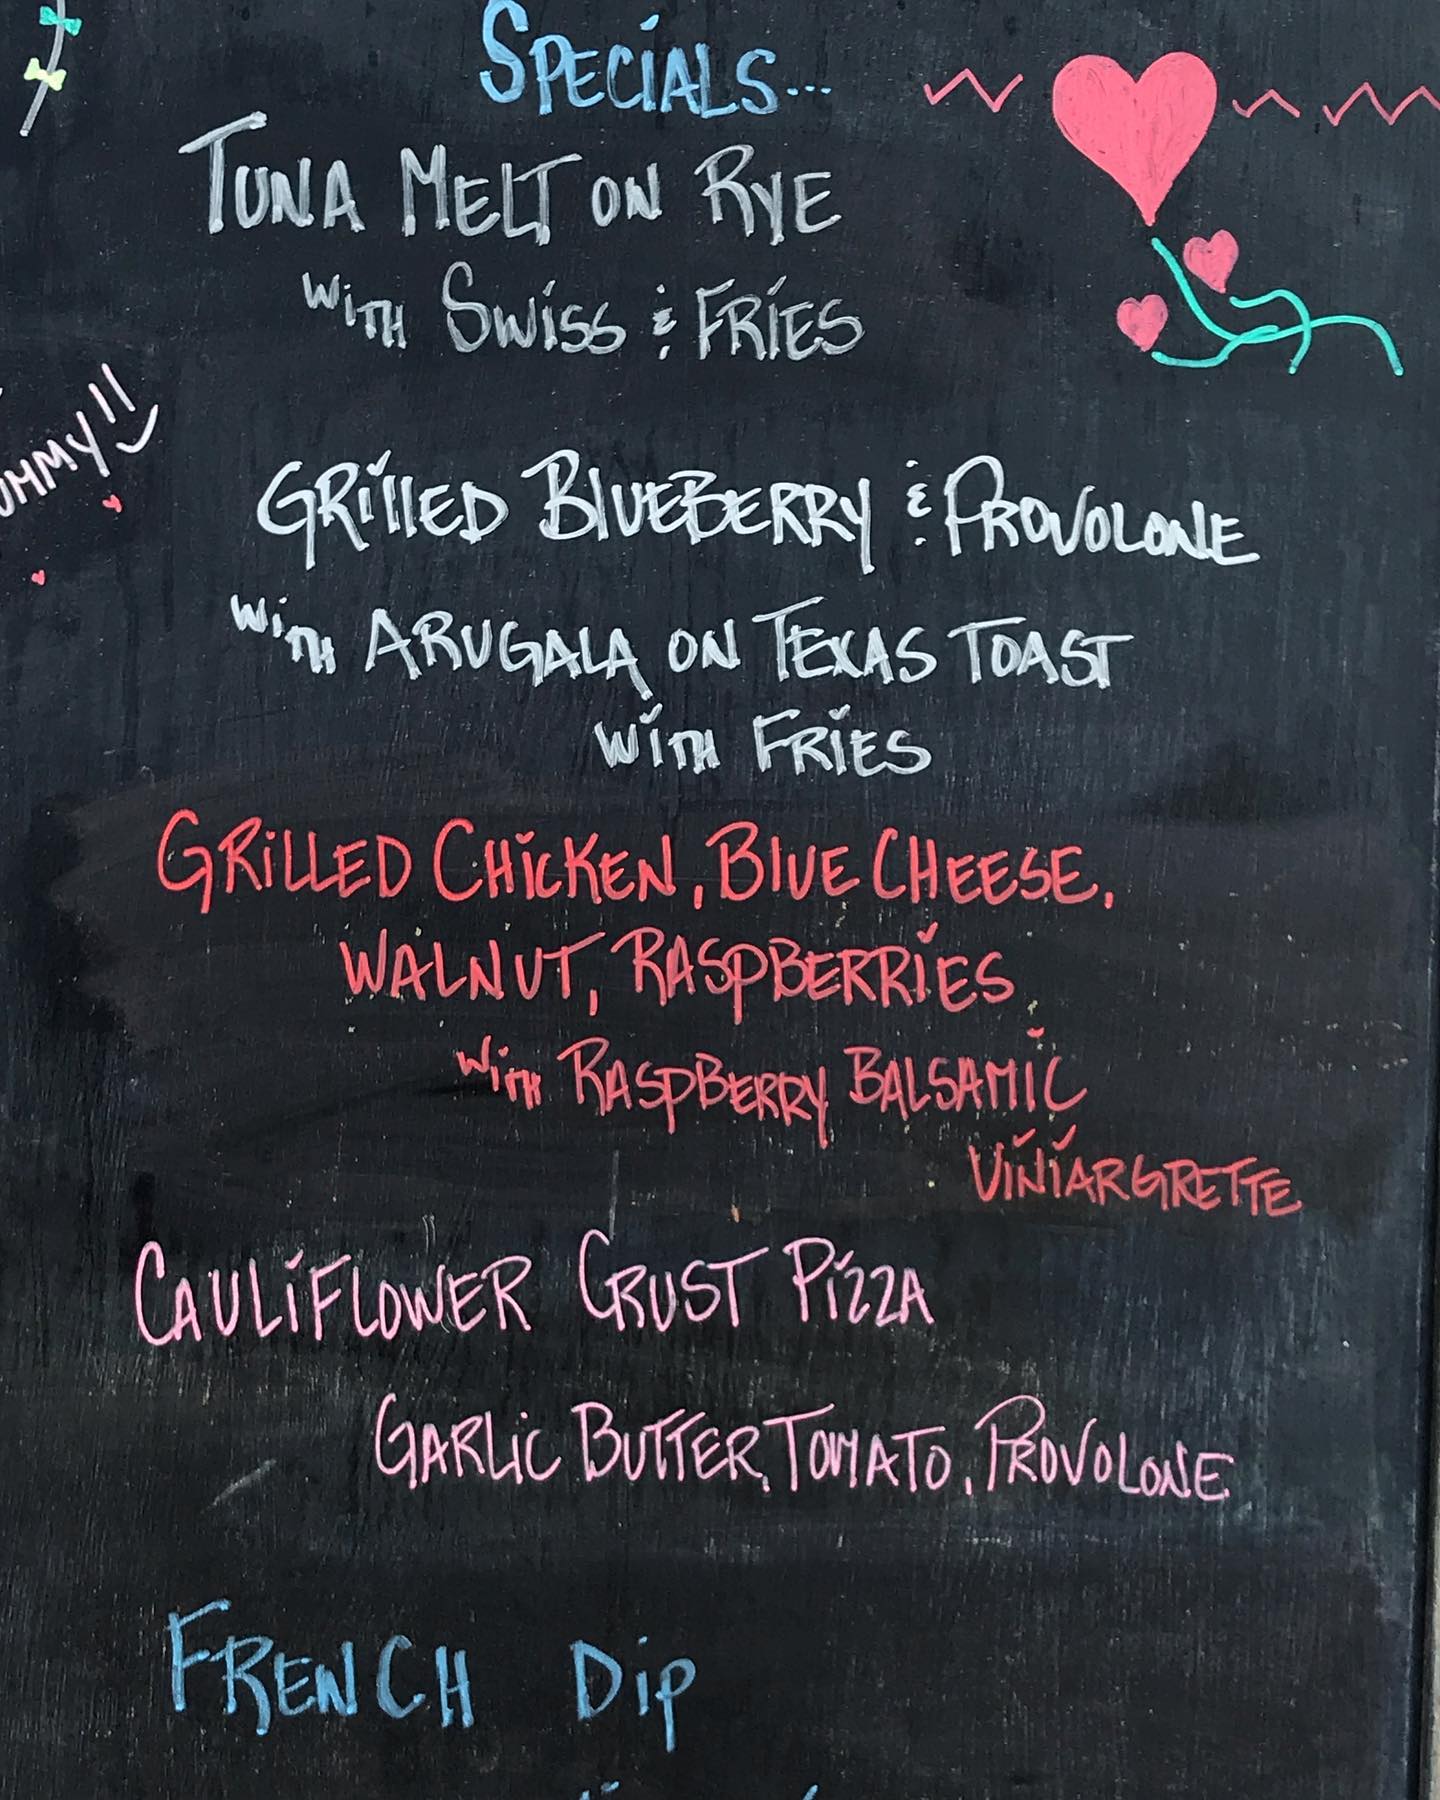 Specials...
Tuna Melt on Rye
with Swiss & Fries
ummy!!
Grilled Blueberry & Provolone
with Arugala on Texas Toast
with Fries
Grilled Chicken, Blue Cheese,
Walnut, Raspberries
with Raspberry Balsamic
Viniargrette
Cauliflower Crust Pizza
Garlic Butter, Tomato, Provolone
French Dip